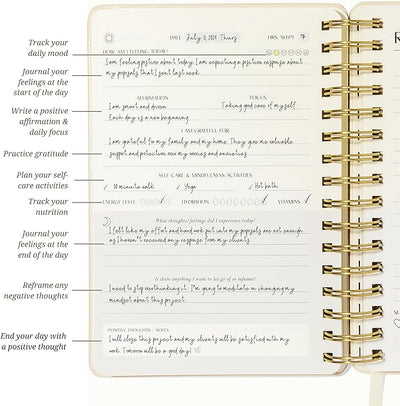 DATE July 11, 2024 - Thurs. HRS. SLEPT 7
Track your
daily mood
HOW AM I FEELING TODAY?
I am feeling positive about today. I am expecting a positive response about
my proposals that I sent last week.
Journal your
feelings at the
start of the day
AFFIRMATION FOCUS
I am smart and driven Taking good care of myself
Each day is a new beginning
Write a positive
affirmation &
daily focus
I AM GRATEFUL FOR
I am grateful for my family and my home. They give me valuable
support and protection over my worries and anxieties
Practice gratitude
SELF-CARE & MINDFULNESS ACTIVITIES
✓ 10 minute walk ✓ Yoga ✓ Hot bath
Plan your self-
care activities
ENERGY LEVEL HYDRATION VITAMINS
Track your
nutrition
What thoughts/feelings did I experience today?
I felt like my effort and hard work put into my proposals are not enough,
as I haven't received any response from my clients
Journal your
feelings at the
end of the day
Is there anything I want to let go of or reframe?
I need to stop overthinking it. I'm going to meditate on changing my
mindset about this project
Reframe any
negative thoughts
POSITIVE THOUGHTS / NOTES
I will close this project and my clients will be satisfied with my
work. Tomorrow will be a good day!
End your day with
a positive thought